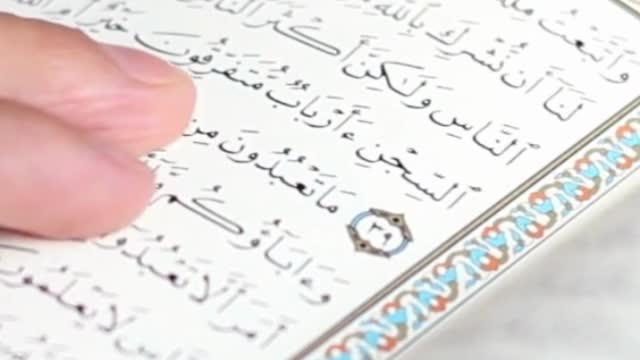 وَٱتَّبَعْتُ
لَنَآ أَن نُّشْرِكَ بِٱللَّهِ
ٱلنَّاسِ وَلَٰكِنَّ أَكْثَرَ ٱلنَّاسِ
ٱلسِّجْنِ ءَأَرْبَابٌ مُّتَفَرِّقُونَ خَيْرٌ أَمِ ٱللَّهُ
٣٩ مَا تَعْبُدُونَ مِن
وَءَابَآؤُكُم
أَمَرَ أَلَّا تَعْبُدُوٓا۟
لَا يَعْلَمُونَ